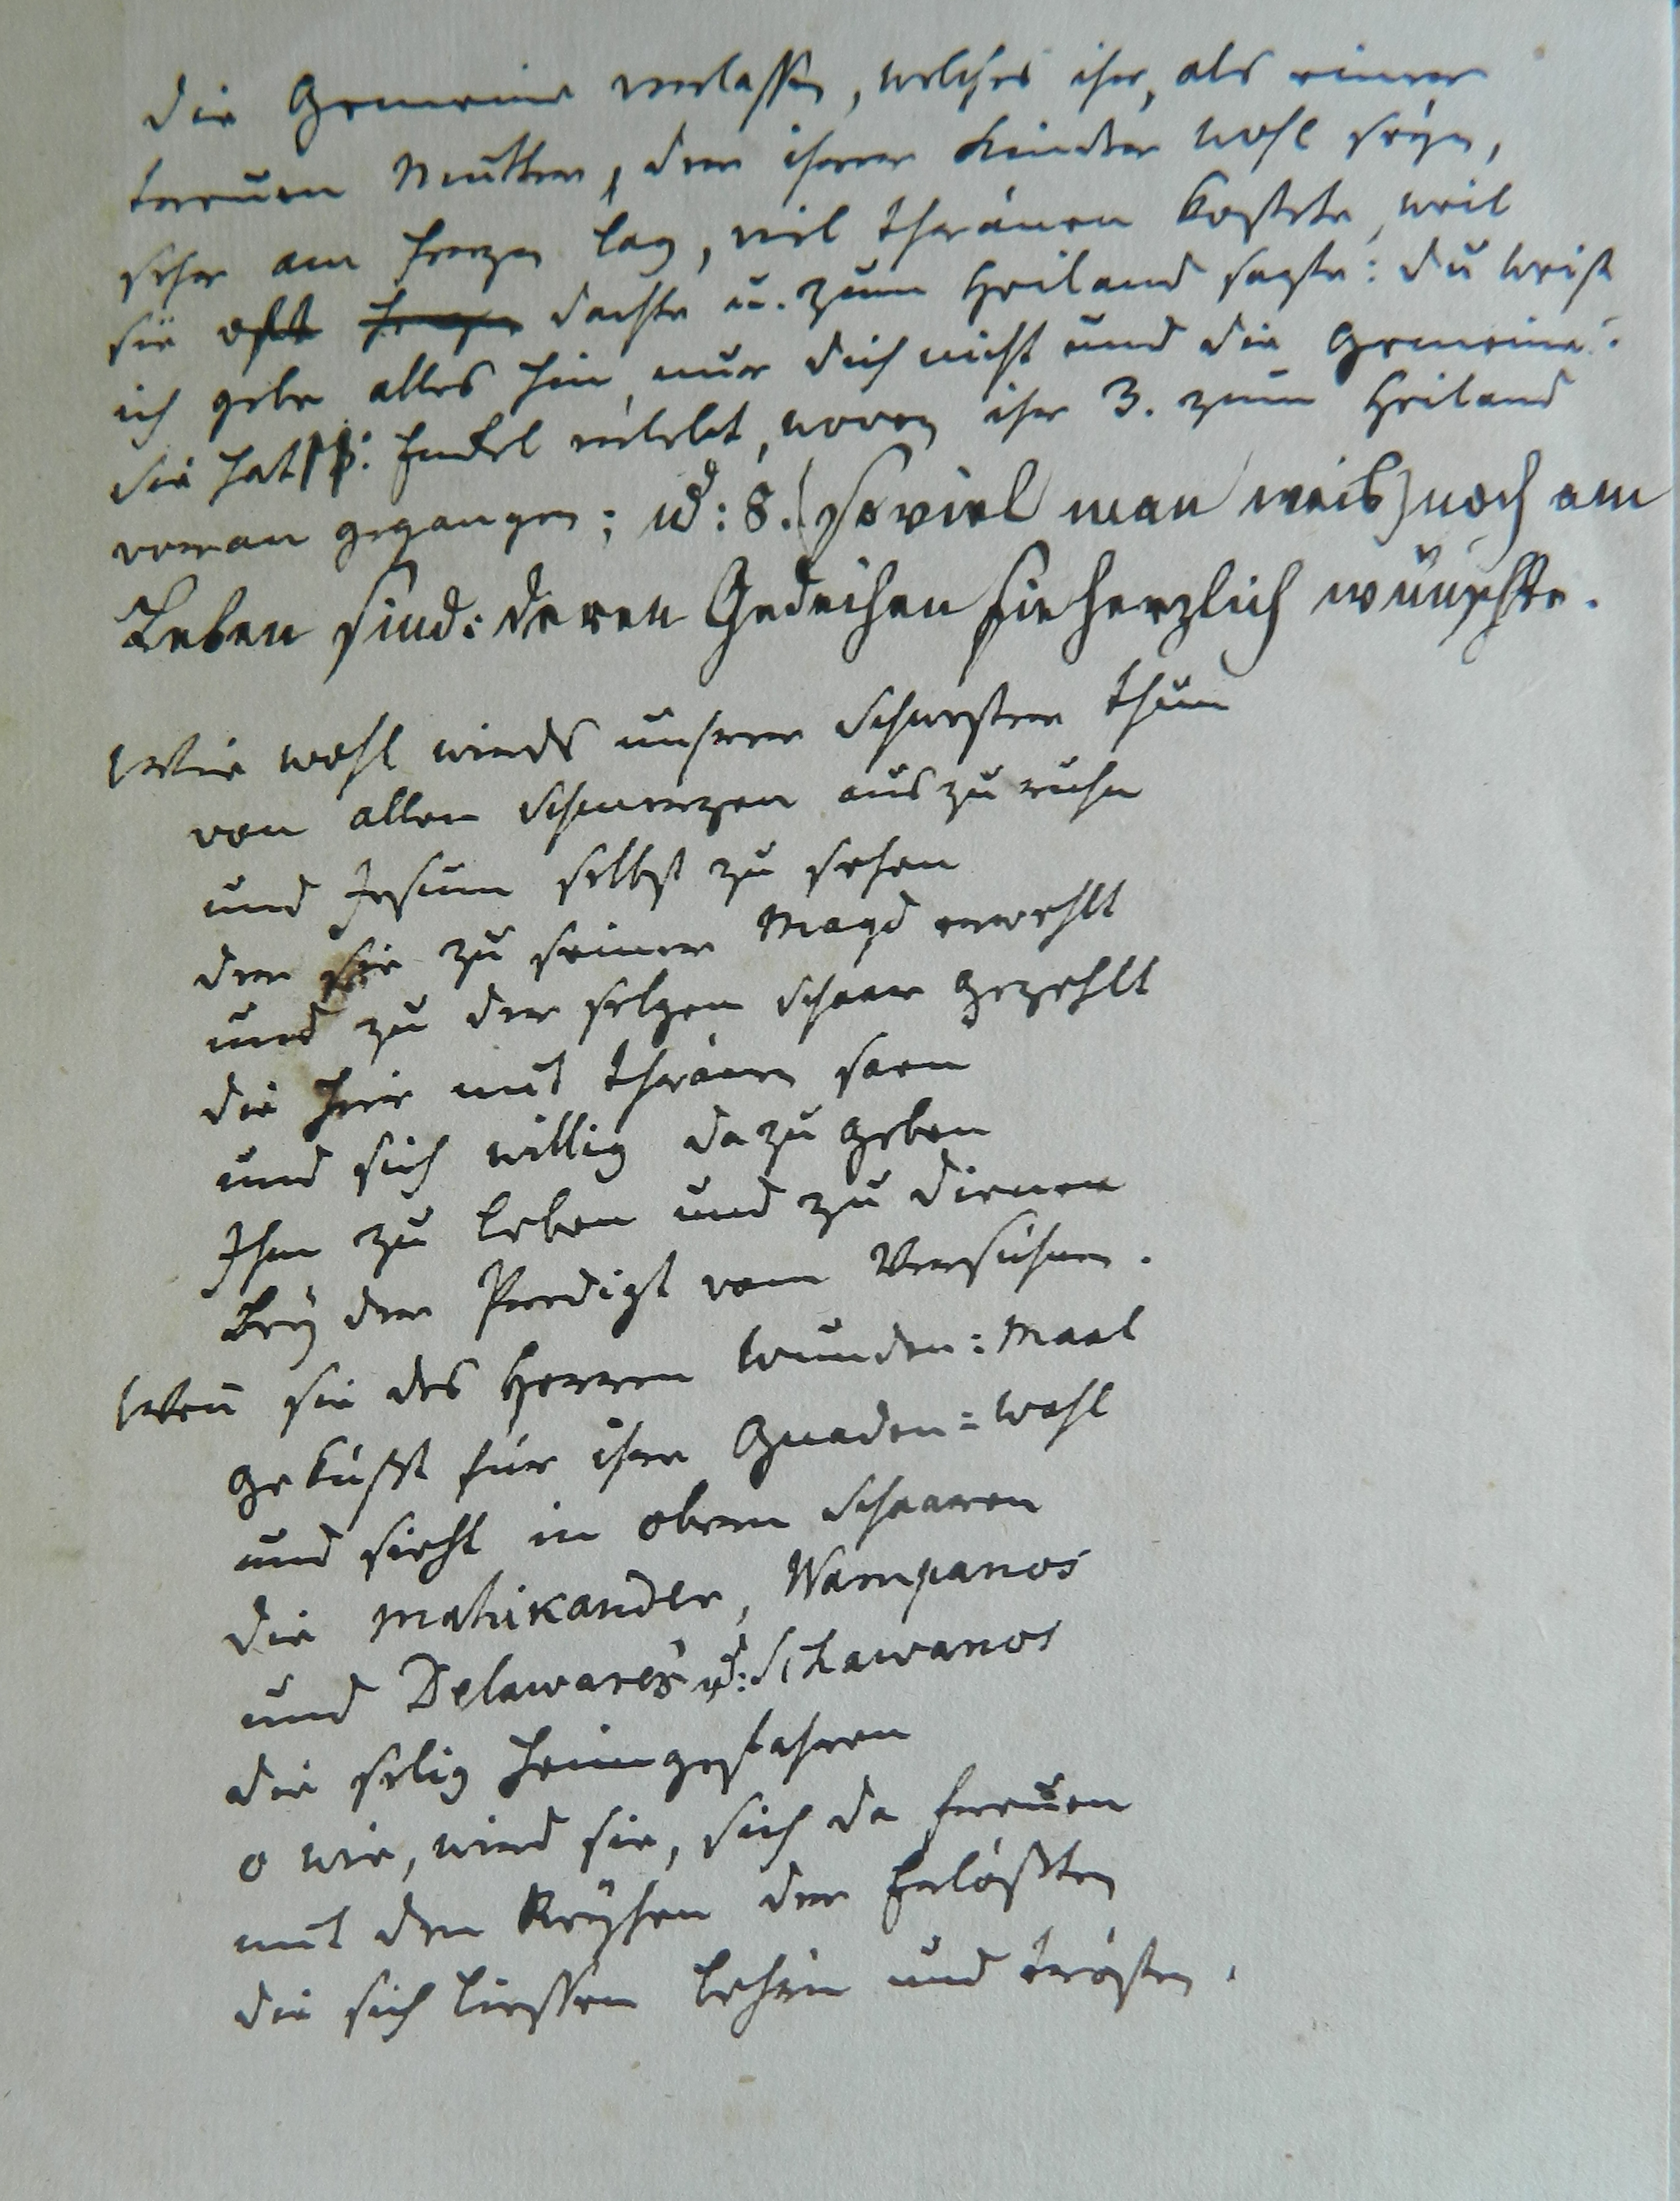 die Gemeine verlassen, welches ihr, als einer
treuen Mutter, der ihrer Kinder wohl seyn,
sehr am Herzen lag, viel Thränen kostete, weil
sie oft dachte u. zum Heiland sagte: du weist
ich gebe alles hin, nur dich nicht und die Gemeine:
sie hat Enkel erlebt, wovon ihr 3. zum Heiland
voran gegangen; ud: 8. (so viel man weis) noch am
Leben sind: deren Gedeihen sie herzlich wünschte.
Wie wohl wirds unsrer Schwester thun
von allen Schmerzen auszuruhn
und Jesum selbst zu sehen
der sie zu seiner Magd erwehlt
und zu der selgen Schaar gezehlt
die hier mit Thränen säen
und sich willig dazu geben
Ihm zu leben und zu dienen
bey der Predigt vom Versühnen.
Wen̄ sie des Herren Wunden=Maal
geküßt für ihre Gnaden=Wahl
und sieht in obern Schaaren
die Mahikander, Wampanos
und Delawares ud: Schawanos
die selig heimgefahren
o wie, wird sie, sich da freuen
mit den Reyhen der Erlößten
die sich liessen lehrn und trösten.